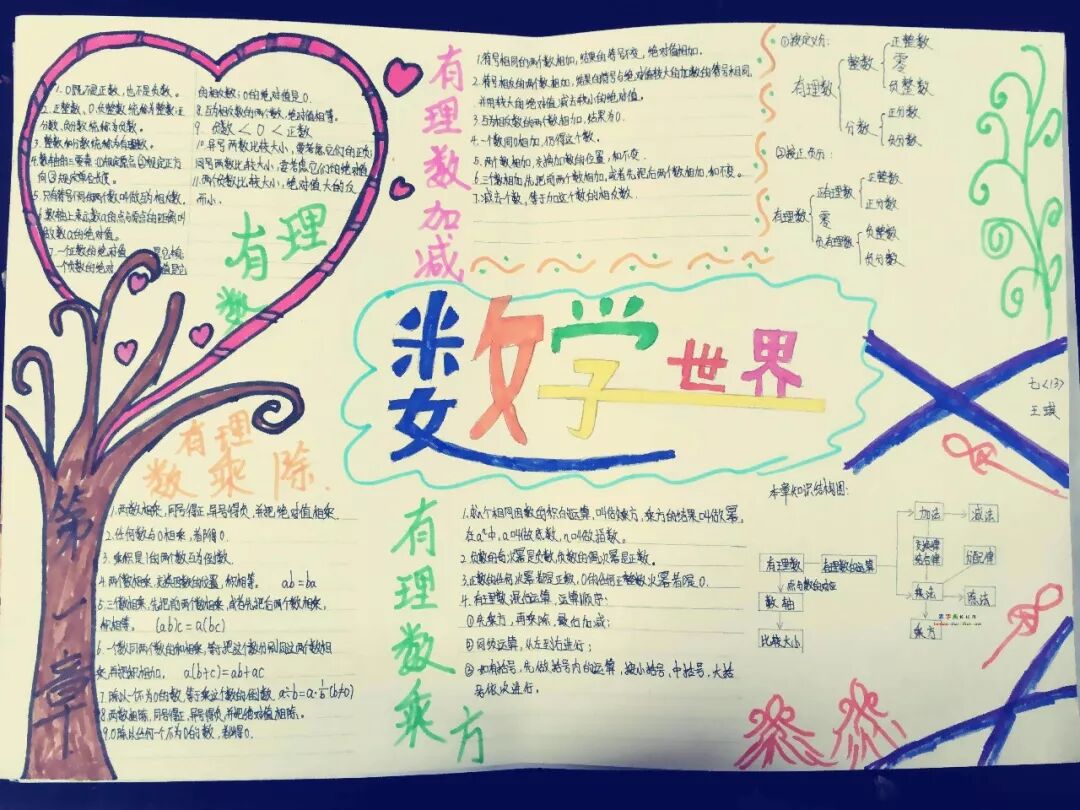 1. 0既不是正数，也不是负数。
2. 正整数、0、负整数统称为整数；正
分数、负分数统称为负数。
3. 整数和分数统称为有理数。
4. 数轴的三要素：①规定原点②规定正方
向③规定单位长度。
5. 只有符号不同的两个数叫做互为相反数。
6. 数轴上表示数a的点与原点的距离叫
做数a的绝对值。
7. 一个正数的绝对 是它本
一个负数的绝对 值是它
的相反数；0的绝对值是0.
8. 互为相反数的两个数，绝对值相等。
9. 负数<0<正数
10. 异号两数比较大小，要考虑它们的正负；
同号两数比较大小，要考虑它们的绝对值
11. 两个负数比较大小，绝对值大的反
而小.
有理
数
有理数加减
1. 符号相同的两个数相加，结果的符号不变，绝对值相加.
2. 符号相反的两个数相加，结果的符号与绝对值较大的加数的符号相同，
并用较大的绝对值减去较小的绝对值。
3. 互为相反数的两个数相加，结果为0.
4. 一个数同0相加，仍得这个数。
5. 两个数相加，交换加数的位置，和不变.
6. 三个数相加，先把前两个数相加，或者先把后两个数相加，和不变。
7. 减去一个数，等于加这个数的相反数.
①按定义分：
有理数
整数
正整数
零
负整数
分数
正分数
负分数
②按正负分：
有理数
正有理数
正整数
正分数
零
负有理数
负整数
负分数
数学世界
七<13>
王
第一章
有理
数乘除.
1. 两数相乘，同号得正，异号得负，并把绝对值相乘.
2. 任何数与0相乘，都得0.
3. 乘积是1的两个数互为倒数.
4. 两个数相乘，交换因数的位置，积相等。 ab=ba
5. 三个数相乘，先把前两个数相乘，或者先把后两个数相乘，
积相等。 (ab)c=a(bc)
6. 一个数同两个数的和相乘，等于把这个数分别同这两个数相
乘，再把积相加。 a(b+c)=ab+ac
7. 除以一个不为0的数，等于乘这个数的倒数 a÷b=a·1/b(b≠0)
8. 两数相除，同号得正，异号得负，并把绝对值相除。
9. 0除以任何一个不为0的数，都得0.
有理数乘方
1. 求n个相同因数的积的运算，叫做乘方，乘方的结果叫做幂.
在aⁿ中，a叫做底数，n叫做指数。
2. 负数的奇次幂是负数，负数的偶次幂是正数。
3. 正数的任何次幂都是正数，0的任何正整数次幂都是0.
4. 有理数混合运算，运算顺序：
①先乘方，再乘除，最后加减；
②同级运算，从左到右进行；
③如有括号，先做括号内的运算，按小括号，中括号，大括
号依次进行。
本章知识结构图：
有理数
有理数的运算
点与数的对应
数轴
比较大小
加法
减法
交换律
结合律
分配律
乘法
除法
乘方